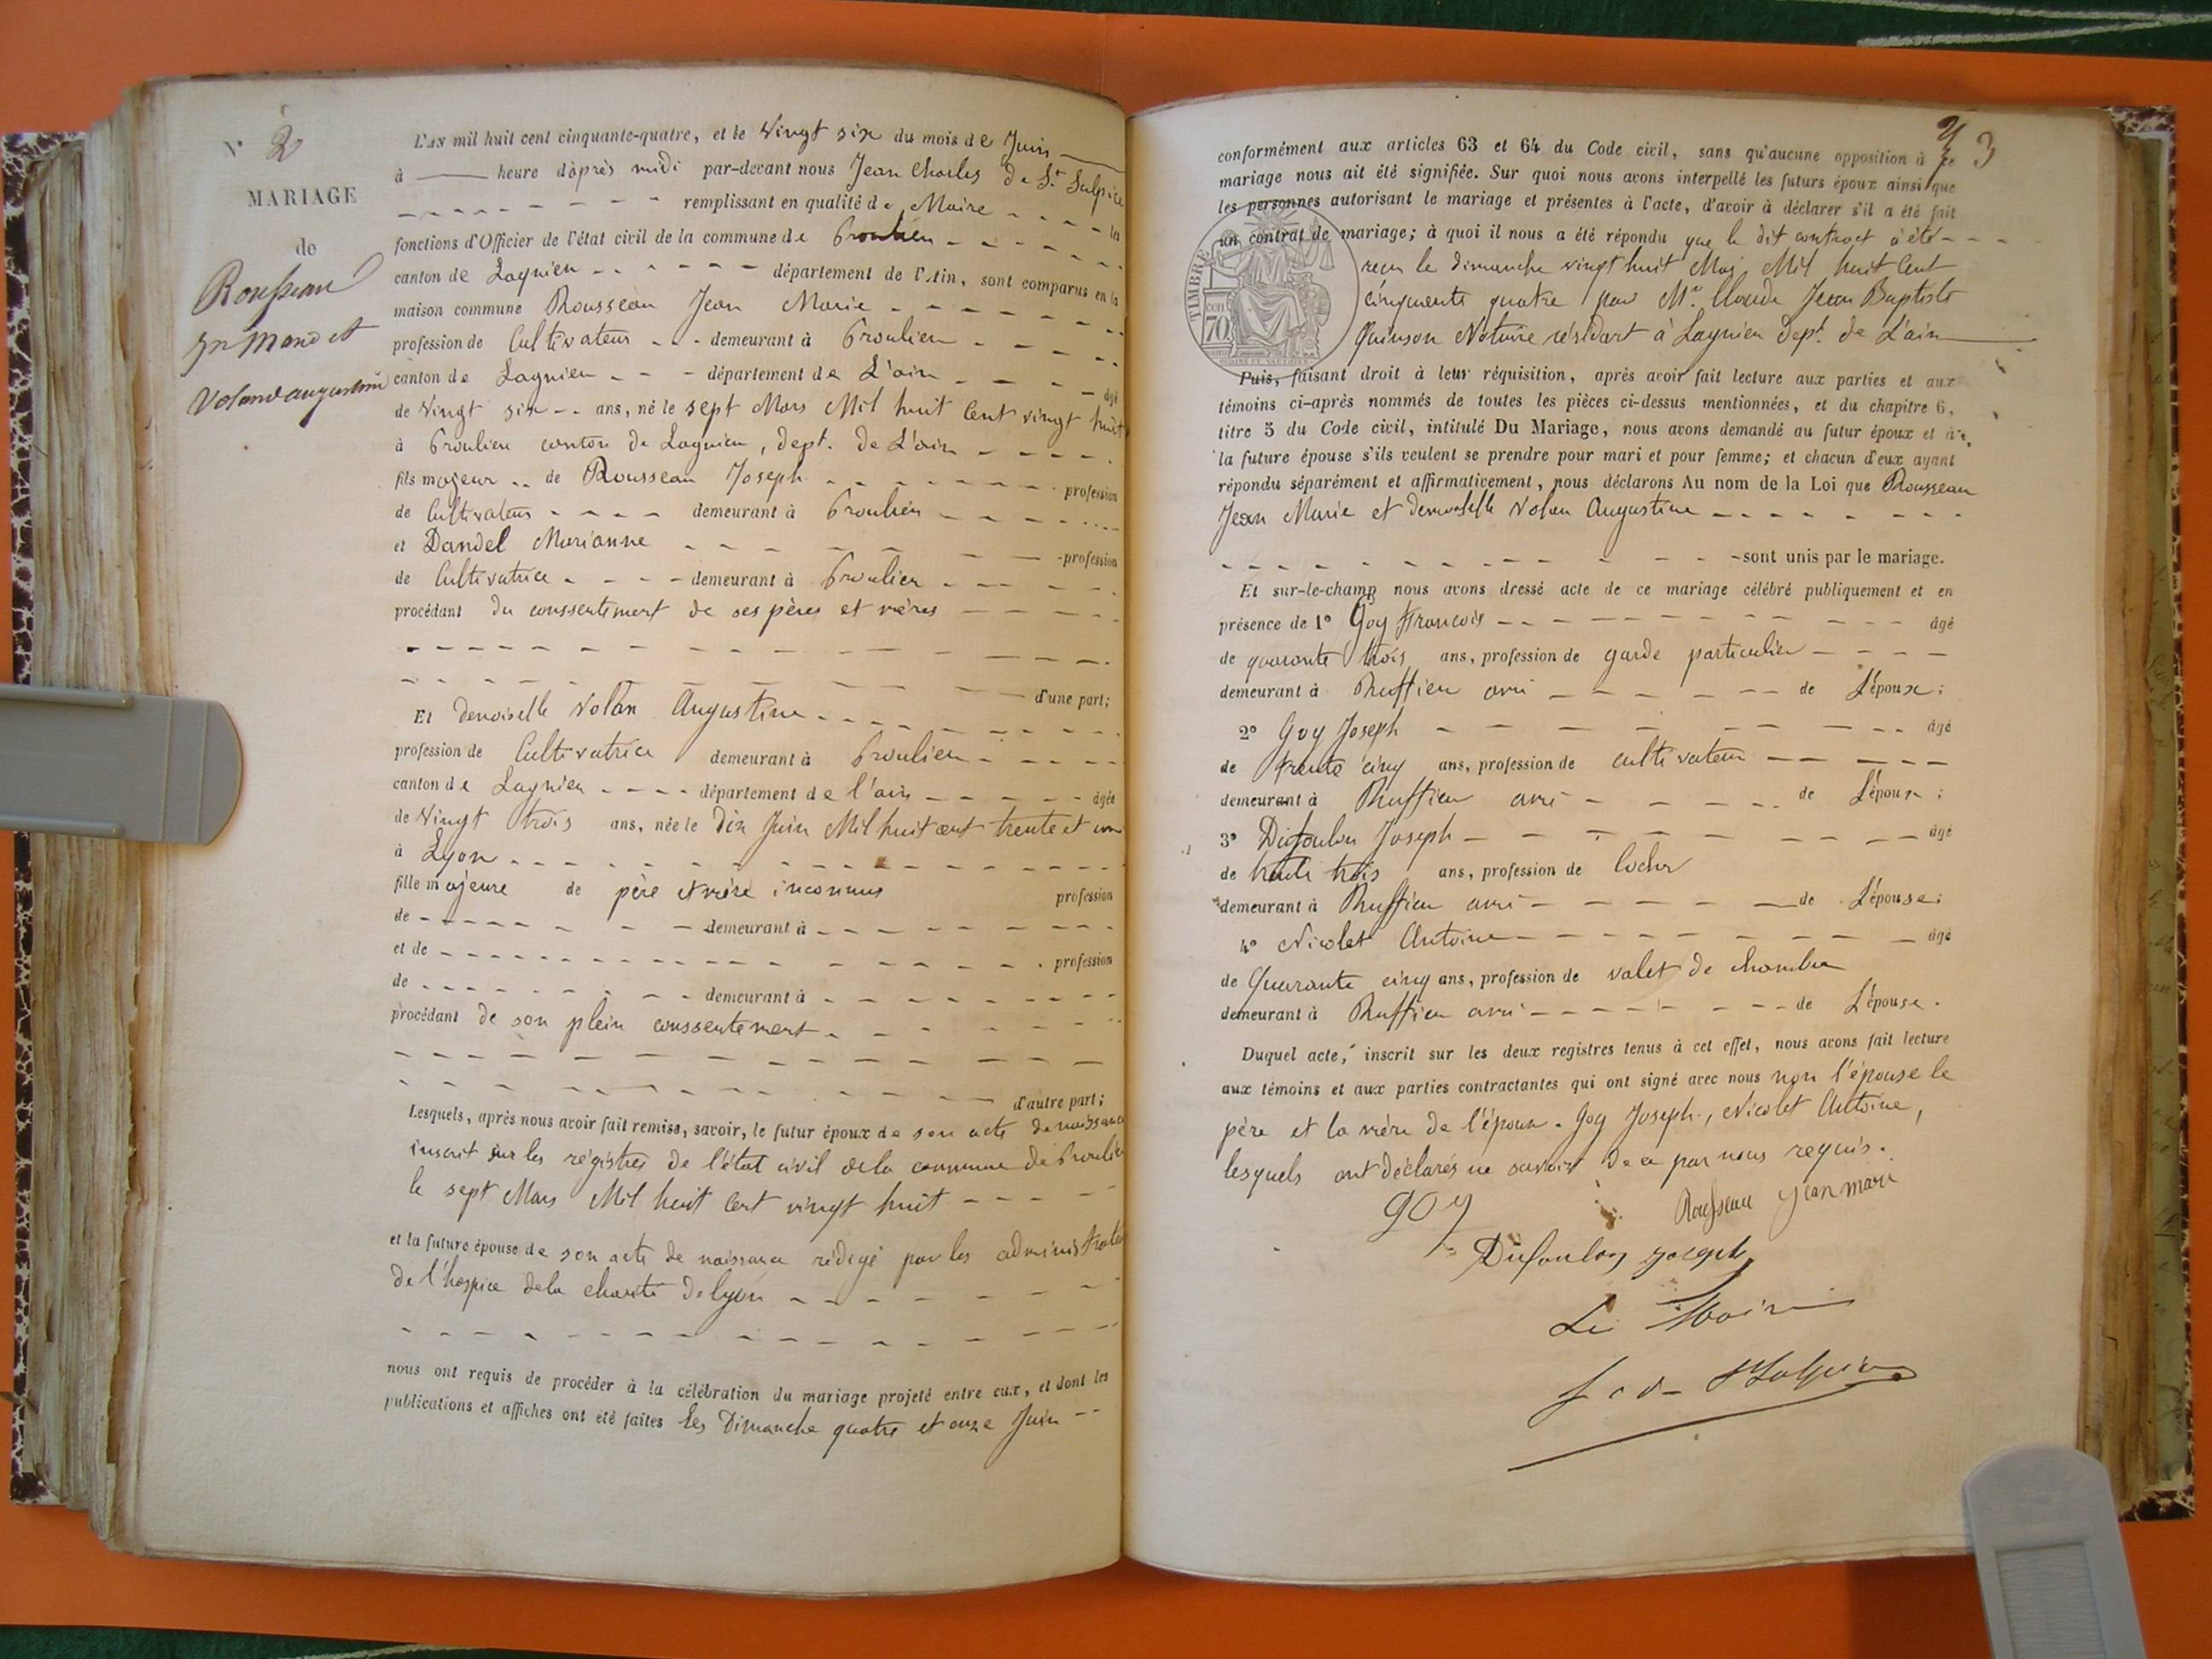 N° 2
MARIAGE
de
Rousseau
jn marie et
Voland augustine
L'an mil huit cent cinquante-quatre, et le Vingt six du mois de Juin
à heure d'après midi par-devant nous Jean Charles De St Sulpice
remplissant en qualité de Maire les
fonctions d'Officier de l'état civil de la commune de Proulieu
canton de Lagnieu département de l'Ain, sont comparus en la
maison commune Rousseau Jean Marie
profession de Cultivateur demeurant à Proulieu
canton de Lagnieu département de L'ain âgé
de Vingt six ans, né le sept Mars Mil huit Cent vingt huit
à Proulieu canton de Lagnieu, dept. de L'ain
fils majeur de Rousseau Joseph profession
de Cultivateur demeurant à Proulieu
et Dandel Marianne profession
de Cultivatrice demeurant à Proulieu
procédant du conssentement de ses pères et mères
d'une part;
Et demoiselle Volan Augustine
profession de Cultivatrice demeurant à Proulieu
canton de Lagnieu département de l'ain âgée
de Vingt trois ans, née le Dix Juin Mil huit cent trente et un
à Lyon
fille majeure de père et mère inconnus profession
de demeurant à
et de profession
de demeurant à
procédant de son plein conssentement
d'autre part;
Lesquels, après nous avoir fait remise, savoir, le futur époux de son acte de naissance
inscrit sur les régistres de l'état civil dela commune de Proulieu
le sept Mars Mil huit Cent vingt huit
et la future épouse de son acte de naissance rédigé par les administrateurs
de l'hospice dela charité de lyon
nous ont requis de procéder à la célébration du mariage projeté entre eux, et dont les
publications et affiches ont été faites les Dimanche quatre et onze Juin
3
conformément aux articles 63 et 64 du Code civil, sans qu'aucune opposition à ce
mariage nous ait été signifiée. Sur quoi nous avons interpellé les futurs époux ainsi que
les personnes autorisant le mariage et présentes à l'acte, d'avoir à déclarer s'il a été fait
un contrat de mariage; à quoi il nous a été répondu que le dit contract à été
TIMBRE
70
reçu le dimanche vingt huit Maj Mil huit Cent
cinquante quatre par Mr. Claude Jean Baptiste
Quinson Notaire résidant à Lagnieu Dept. de L'ain
Puis, faisant droit à leur réquisition, après avoir fait lecture aux parties et aux
témoins ci-après nommés de toutes les pièces ci-dessus mentionnées, et du chapitre 6,
titre 5 du Code civil, intitulé Du Mariage, nous avons demandé au futur époux et à
la future épouse s'ils veulent se prendre pour mari et pour femme; et chacun d'eux ayant
répondu séparément et affirmativement, nous déclarons Au nom de la Loi que Rousseau
Jean Marie et demoiselle Volan Augustine
sont unis par le mariage.
Et sur-le-champ nous avons dressé acte de ce mariage célébré publiquement et en
présence de 1° Goy François âgé
de quarante trois ans, profession de garde particulier
demeurant à Ruffieu ami de L'époux;
2° Goy Joseph âgé
de trente cinq ans, profession de cultivateur
demeurant à Ruffieu ami de L'époux;
3° Dufoulon Joseph âgé
de trente trois ans, profession de Cocher
demeurant à Ruffieu ami de L'épouse;
4° Nicolet Antoine âgé
de Quarante cinq ans, profession de valet de chambre
demeurant à Ruffieu ami de L'épouse.
Duquel acte, inscrit sur les deux registres tenus à cet effet, nous avons fait lecture
aux témoins et aux parties contractantes qui ont signé avec nous non l'épouse le
père et la mère de l'époux. Goy Joseph, Nicolet Antoine,
lesquels ont déclarés ne savoir de ce par nous requis.
goy
Rousseau jean mari
Dufoulon joseph
Le Maire